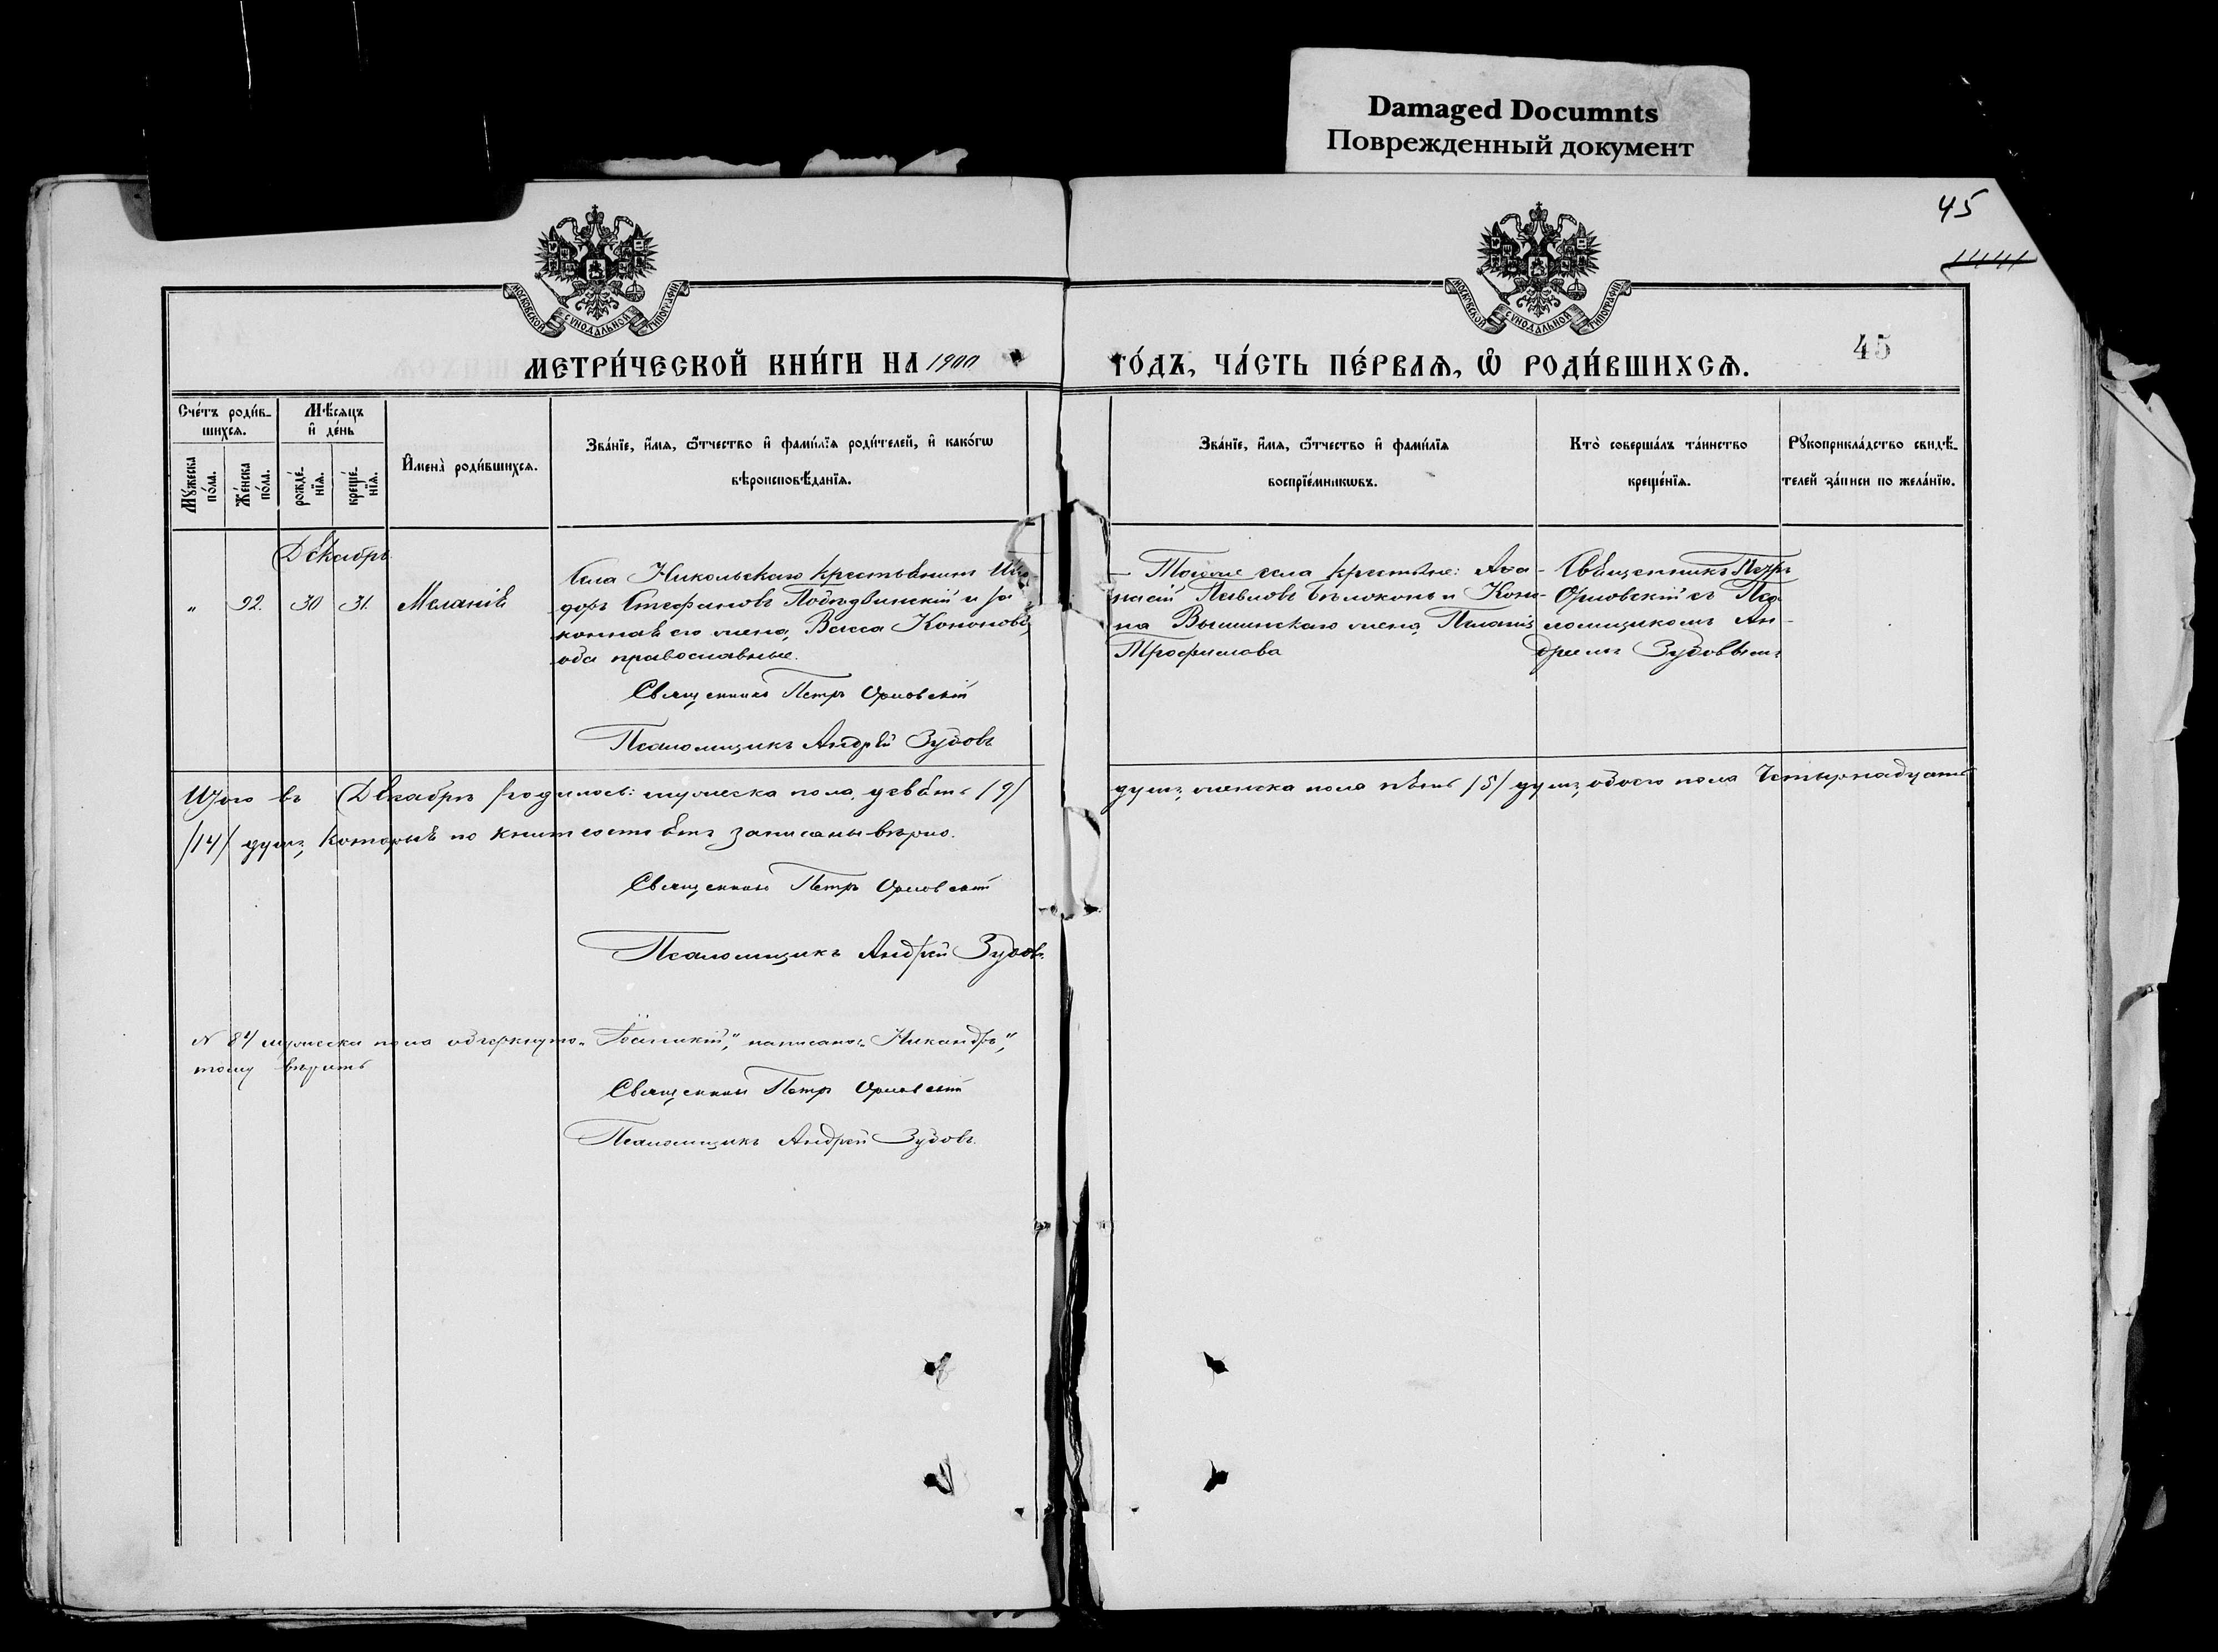 Damaged Documnts
Поврежденный документ
45
МОСКОВСКОЙ СѴНОДАЛЬНОЙ ТИПОГРАФІИ
МОСКОВСКОЙ СѴНОДАЛЬНОЙ ТИПОГРАФІИ
45
МЕТРИ́ЧЕСКОЙ КНИ́ГИ НА 1900
ГО́ДЪ, ЧА́СТЬ ПЕ́РВАѦ, Ѡ҆ РОДИ́ВШИХСѦ.
Сче́тъ роди́в-
шихсѧ.
Мѣ́сѧцъ
и҆ де́нь
Мꙋ́жеска
по́ла.
Же́нска
по́ла.
рожде́-
нїѧ.
креще́-
нїѧ.
И҆мена̀ роди́вшихсѧ.
Зва́нїе, и҆́мѧ, ѻ҆́тчество и҆ фами́лїѧ роди́телей, и҆ како́гѡ
вѣроисповѣ́данїѧ.
Зва́нїе, и҆́мѧ, ѻ҆́тчество и҆ фами́лїѧ
воспрїе́мникѡвъ.
Кто̀ соверша́лъ та́инство
креще́нїѧ.
Рꙋкоприкла́дство свидѣ́-
телей за́писи по жела́нїю.
Декабрь
" 92. 30 31. Меланія
Села Никольскаго крестьянинъ Иси-
доръ Стефановъ Поднъдвинскій и за
конная его жена, Васса Кононова,
оба православные.
Священникъ Петръ Орловскій
Псаломщикъ Андрей Зубовъ
Тогоже села крестьяне: Аѳа-
насій Павловъ Бѣлоконь и Коно-
на Вышинскаго жена, Пелагія
Трофимова
Священникъ Петръ
Орловскій съ Пса-
ломщикомъ Ан-
дреемъ Зубовымъ
Итого въ Декабрѣ родилось: мужеска пола, девять /9/
душъ, женска пола пять /5/ душъ, обоего пола четырнадцать
/14/ душъ, которыя по книгѣ состоятъ записаны вѣрно.
Священникъ Петръ Орловскій
Псаломщикъ Андрей Зубовъ.
N 84 мужеска пола подчеркнуто „Іоанникій", написано: „Никандръ",
тому вѣрить
Священникъ Петръ Орловскій
Псаломщикъ Андрей Зубовъ.